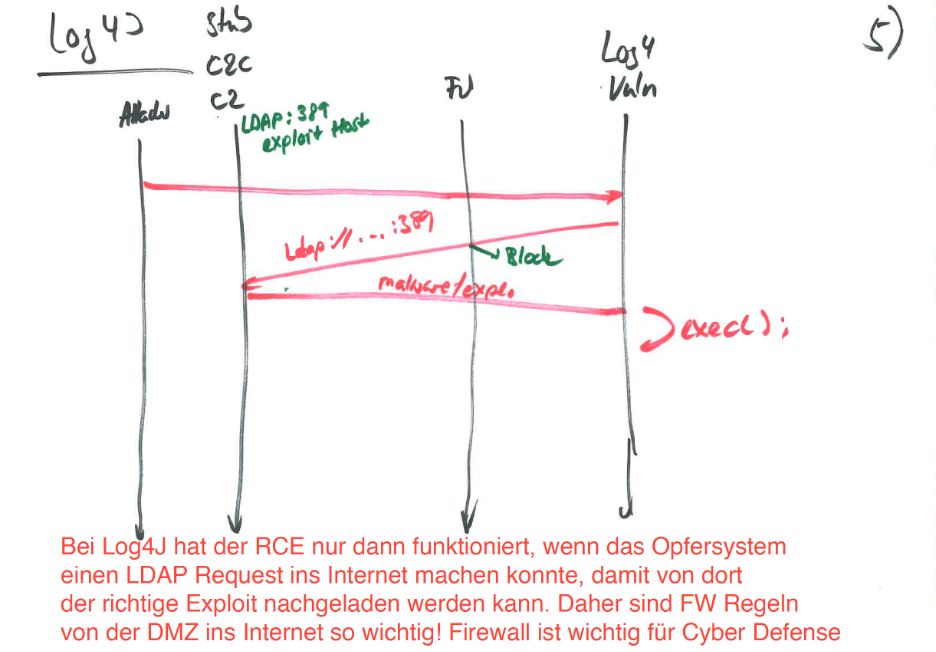 Log4J
Stub
C2C
C2
Log4
Vuln
5)
FW
LDAP:389
exploit Host
Ldap://...:389
Block
malware/explo.
exec();
Bei Log4J hat der RCE nur dann funktioniert, wenn das Opfersystem
einen LDAP Request ins Internet machen konnte, damit von dort
der richtige Exploit nachgeladen werden kann. Daher sind FW Regeln
von der DMZ ins Internet so wichtig! Firewall ist wichtig für Cyber Defense